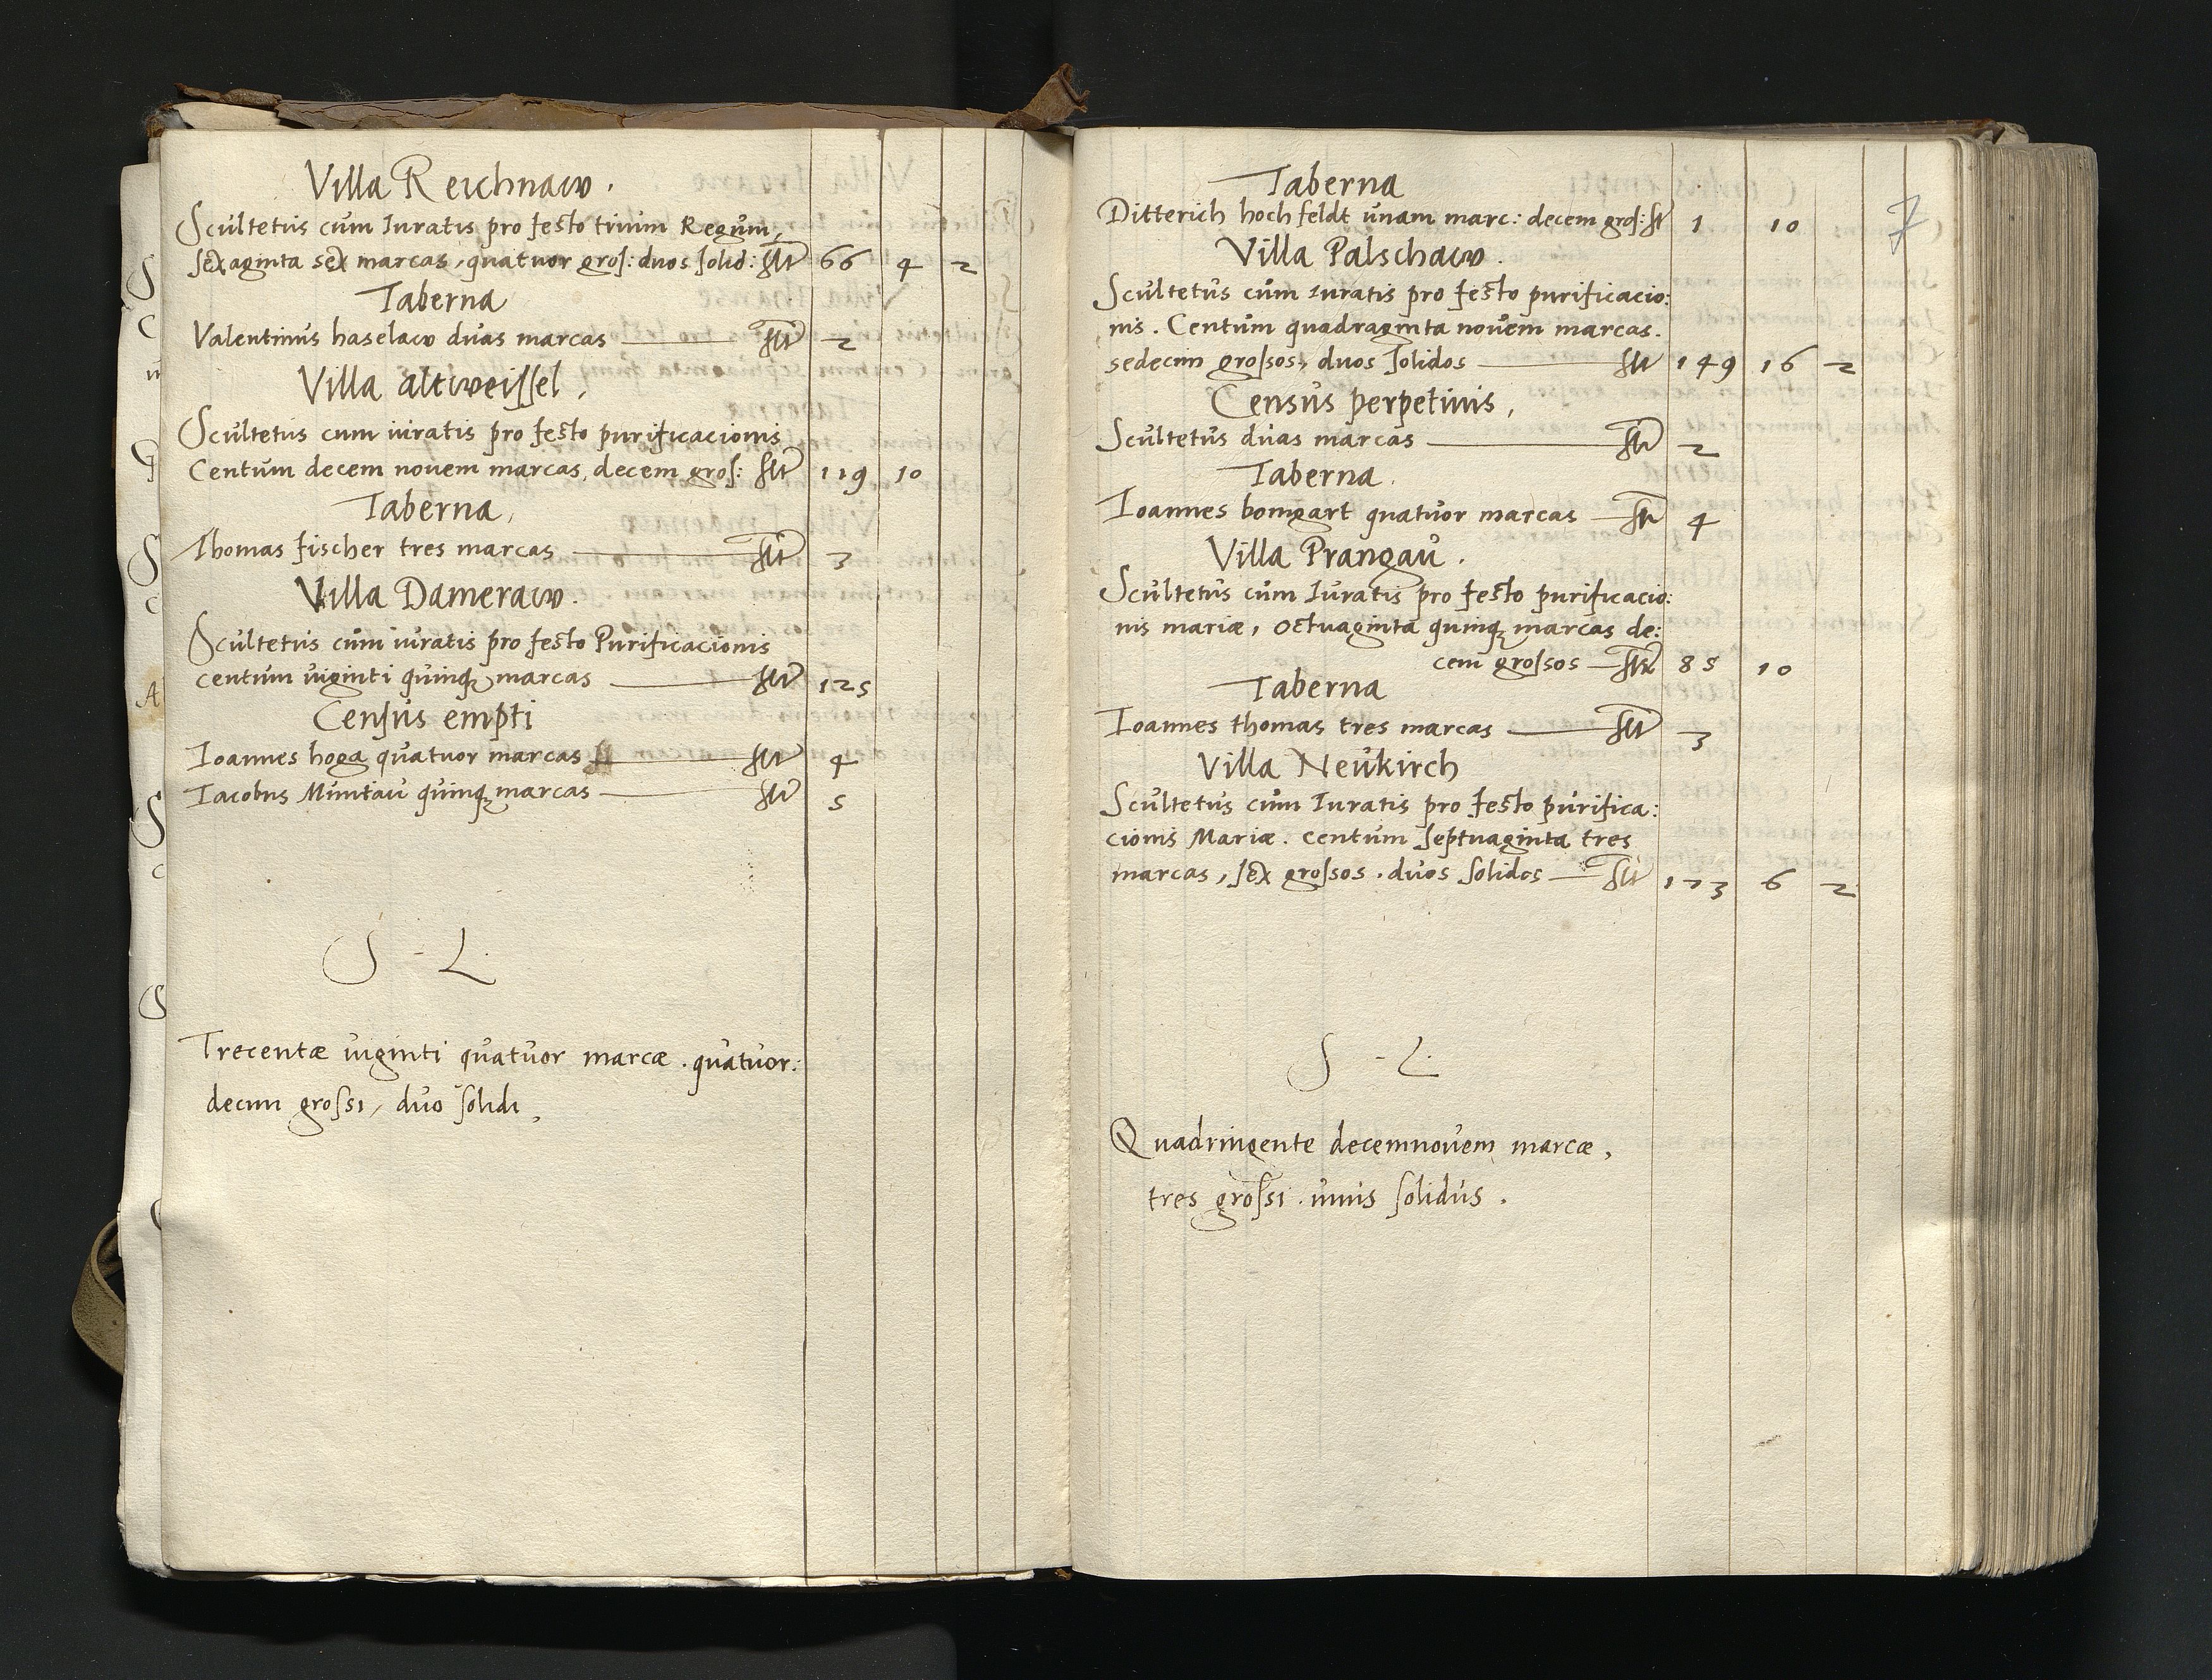 Villa Reichnaw.
Scultetus cum Iuratis pro festo trium Regum,
sexaginta sex marcas, quatuor gros: duos solid: 66 4 2
Taberna
Valentinus haselaw duas marcas 2
Villa altweissel,
Scultetus cum iuratis pro festo purificacionis
Centum decem novem marcas, decem gros: 119 10
Taberna,
Thomas fischer tres marcas 3
Villa Dameraw.
Scultetus cum iuratis pro festo Purificacionis
centum viginti quinq marcas 125
Census empti
Ioannes hoga quatuor marcas 4
Iacobus Muntau quinq marcas 5
S - L
Trecentæ viginti quatuor marcæ. quatuor:
decim grossi, duo solidi,
7
Taberna
Ditterich hochfeldt unam marc: decem gros: 1 10
Villa Palschaw.
Scultetus cum Iuratis pro festo purificacio:
nis. Centum quadraginta novem marcas.
sedecim grossos, duos solidos 149 16 2
Census perpetuus,
Scultetus duas marcas 2
Taberna.
Ioannes bomgart quatuor marcas 4
Villa Prangau.
Scultetus cum Iuratis pro festo purificacio:
nis mariæ, octuaginta quinq marcas de:
cem grossos 85 10
Taberna
Ioannes thomas tres marcas 3
Villa Neukirch
Scultetus cum Iuratis pro festo purifica:
cionis Mariæ. centum septuaginta tres
marcas, sex grossos. duos solidos 173 6 2
S - L.
Quadringente decemnovem marcæ,
tres grossi. unus solidus.